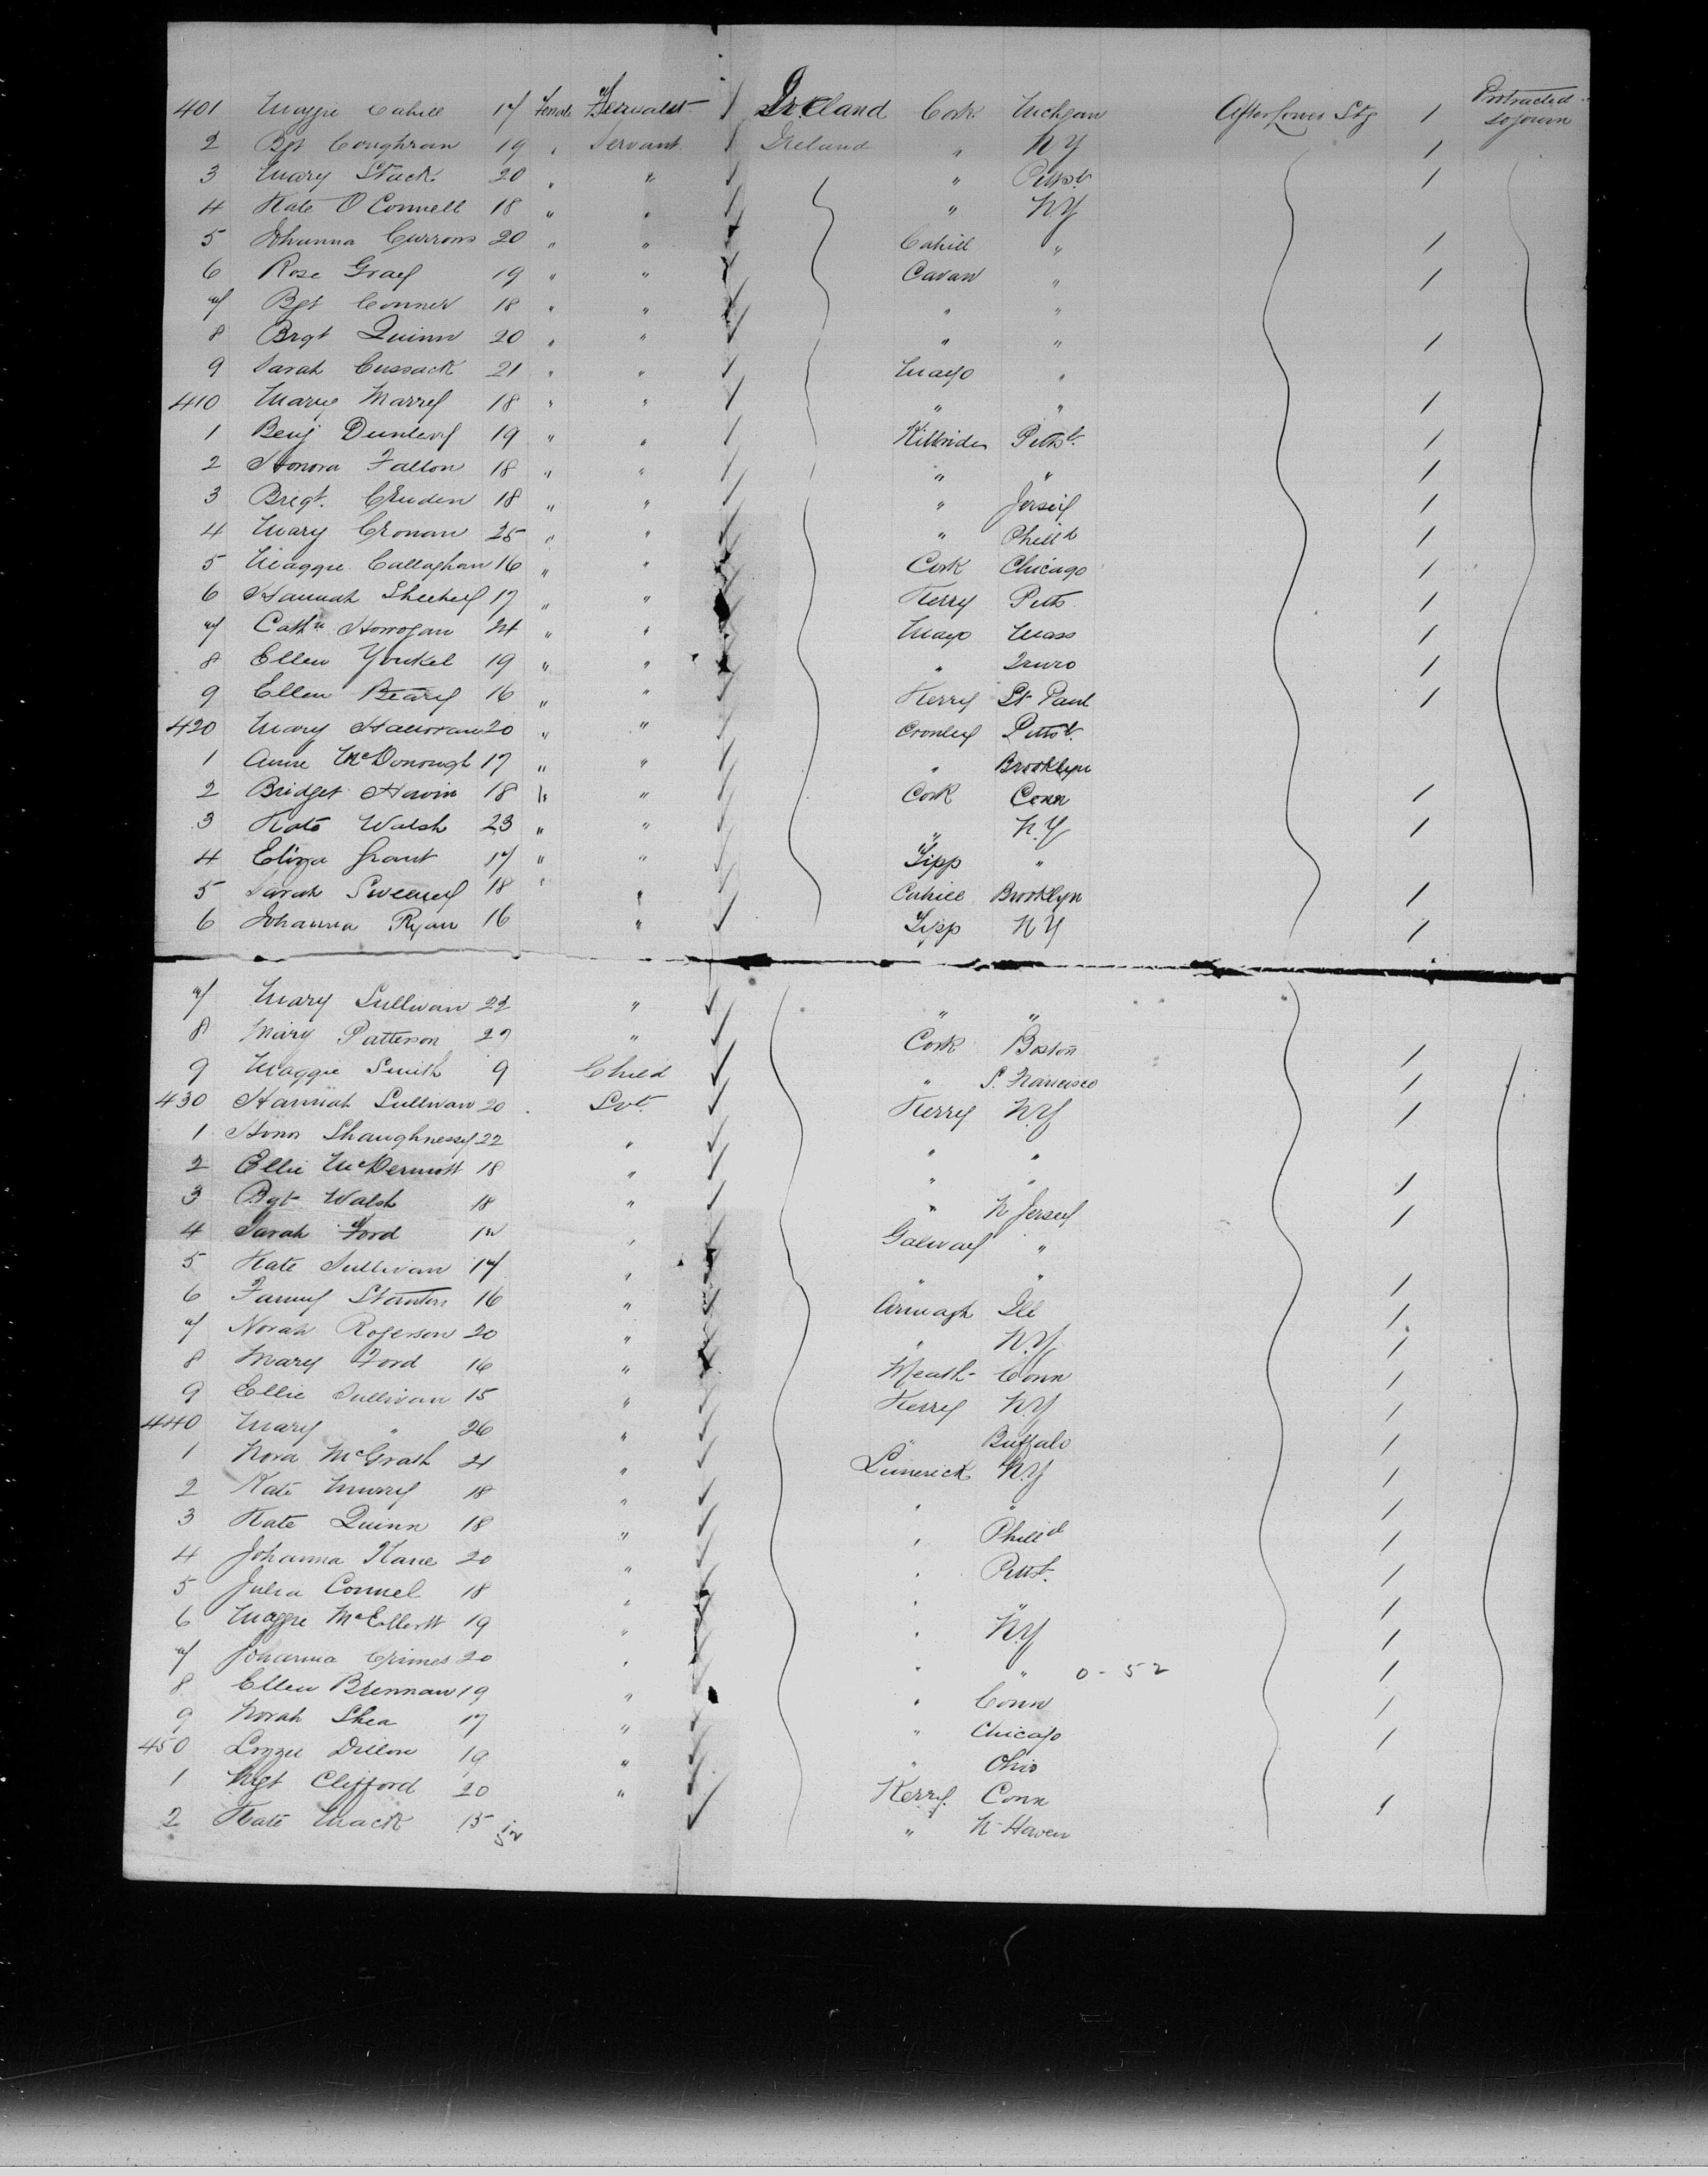 401 Maggie Cahill 17 Female Servant / Ireland Cork Michigan After Lower Stg 1 Protracted sojourn
2 Bgt Coughran 19 " Servant / Ireland " N Y 1
3 Mary Stack 20 " " " Pittsb. 1
4 Kate O Connell 18 " " " N.Y
5 Johanna Currons 20 " " Cahill " 1
6 Rose Gray 19 " " Cavan " 1
7 Bgt Conner 18 " " " "
8 Brgt Quinn 20 " " " " 1
9 Sarah Cussack 21 " " Mayo "
410 Mary Marrey 18 " " " " 1
1 Benj Dunlevy 19 " " Kilbride Pittsb. 1
2 Honora Fallon 18 " " " " 1
3 Brigt. Cruden 18 " " " Jersey 1
4 Mary Cronan 25 " " " Philld 1
5 Maggie Callaghan 16 " " Cork Chicago 1
6 Hannah Sheehey 17 " " Kerry Pitts 1
7 Cathn Horrogan 24 " " Mayo Mass 1
8 Ellen Youkel 19 " " " Truro 1
9 Ellen Beary 16 " " Kerry St Paul 1
420 Mary Halloran 20 " " Cronley Pittsb.
1 Annie McDonough 17 " " " Brooklyn
2 Bridget Havin 18 " " Cork Conn 1
3 Kate Walsh 23 " " " N.Y 1
4 Eliza Grant 17 " " Tipp "
5 Sarah Sweeney 18 " " Cahill Brooklyn 1
6 Johanna Ryan 16 " Tipp N Y 1
7 Mary Sullivan 22 " " "
8 Mary Patterson 27 " Cork Boston 1
9 Maggie Smith 9 Child " S. Francisco 1
430 Hannah Sullivan 20 Svt. Kerry N.Y 1
1 Honor Shaughnessy 22 " " "
2 Ellie McDermott 18 " " " 1
3 Bgt Walsh 18 " " N Jersey 1
4 Sarah Ford " Galway "
5 Kate Sullivan 17 " " " 1
6 Fanny Stanton 16 " Armagh Ill 1
7 Norah Rogerson 20 " " N.Y 1
8 Mary Ford 16 " Meath Conn 1
9 Ellie Sullivan 15 " Kerry N.Y 1
440 Mary " 26 " " Buffalo 1
1 Nora McGrath 21 " Limerick N.Y 1
2 Kate Murry 18 " " " 1
3 Kate Quinn 18 " " Philld 1
4 Johanna Kane 20 " " Pittsb. 1
5 Julia Connel 18 " " " 1
6 Maggie McEllistt 19 " " N.Y 1
7 Johanna Grimes 20 " " " 0-52 1
8 Ellen Brennan 19 " " Conn 1
9 Norah Shea 17 " " Chicago 1
450 Lizzie Dillon 19 " " Ohio
1 Mgt Clifford 20 " Kerry. Conn 1
2 Kate Mack 15 " N-Haven